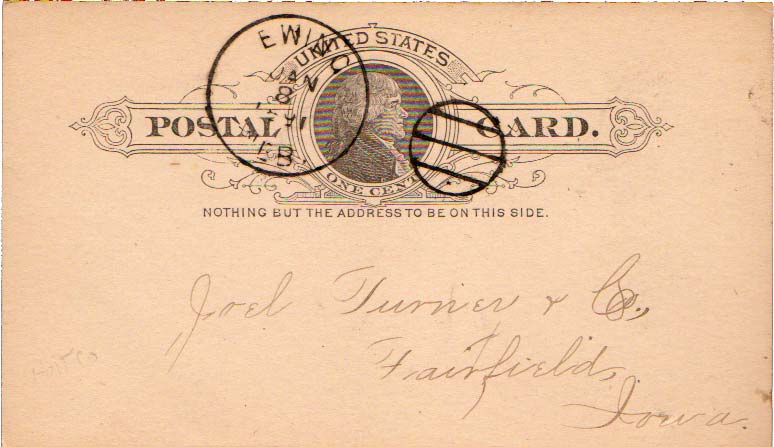 UNITED STATES
POSTAL CARD.
ONE CENT
NOTHING BUT THE ADDRESS TO BE ON THIS SIDE.
EWING
JAN
8
91
EB.
Joel Turner & Co.,
Fairfield,
Iowa.